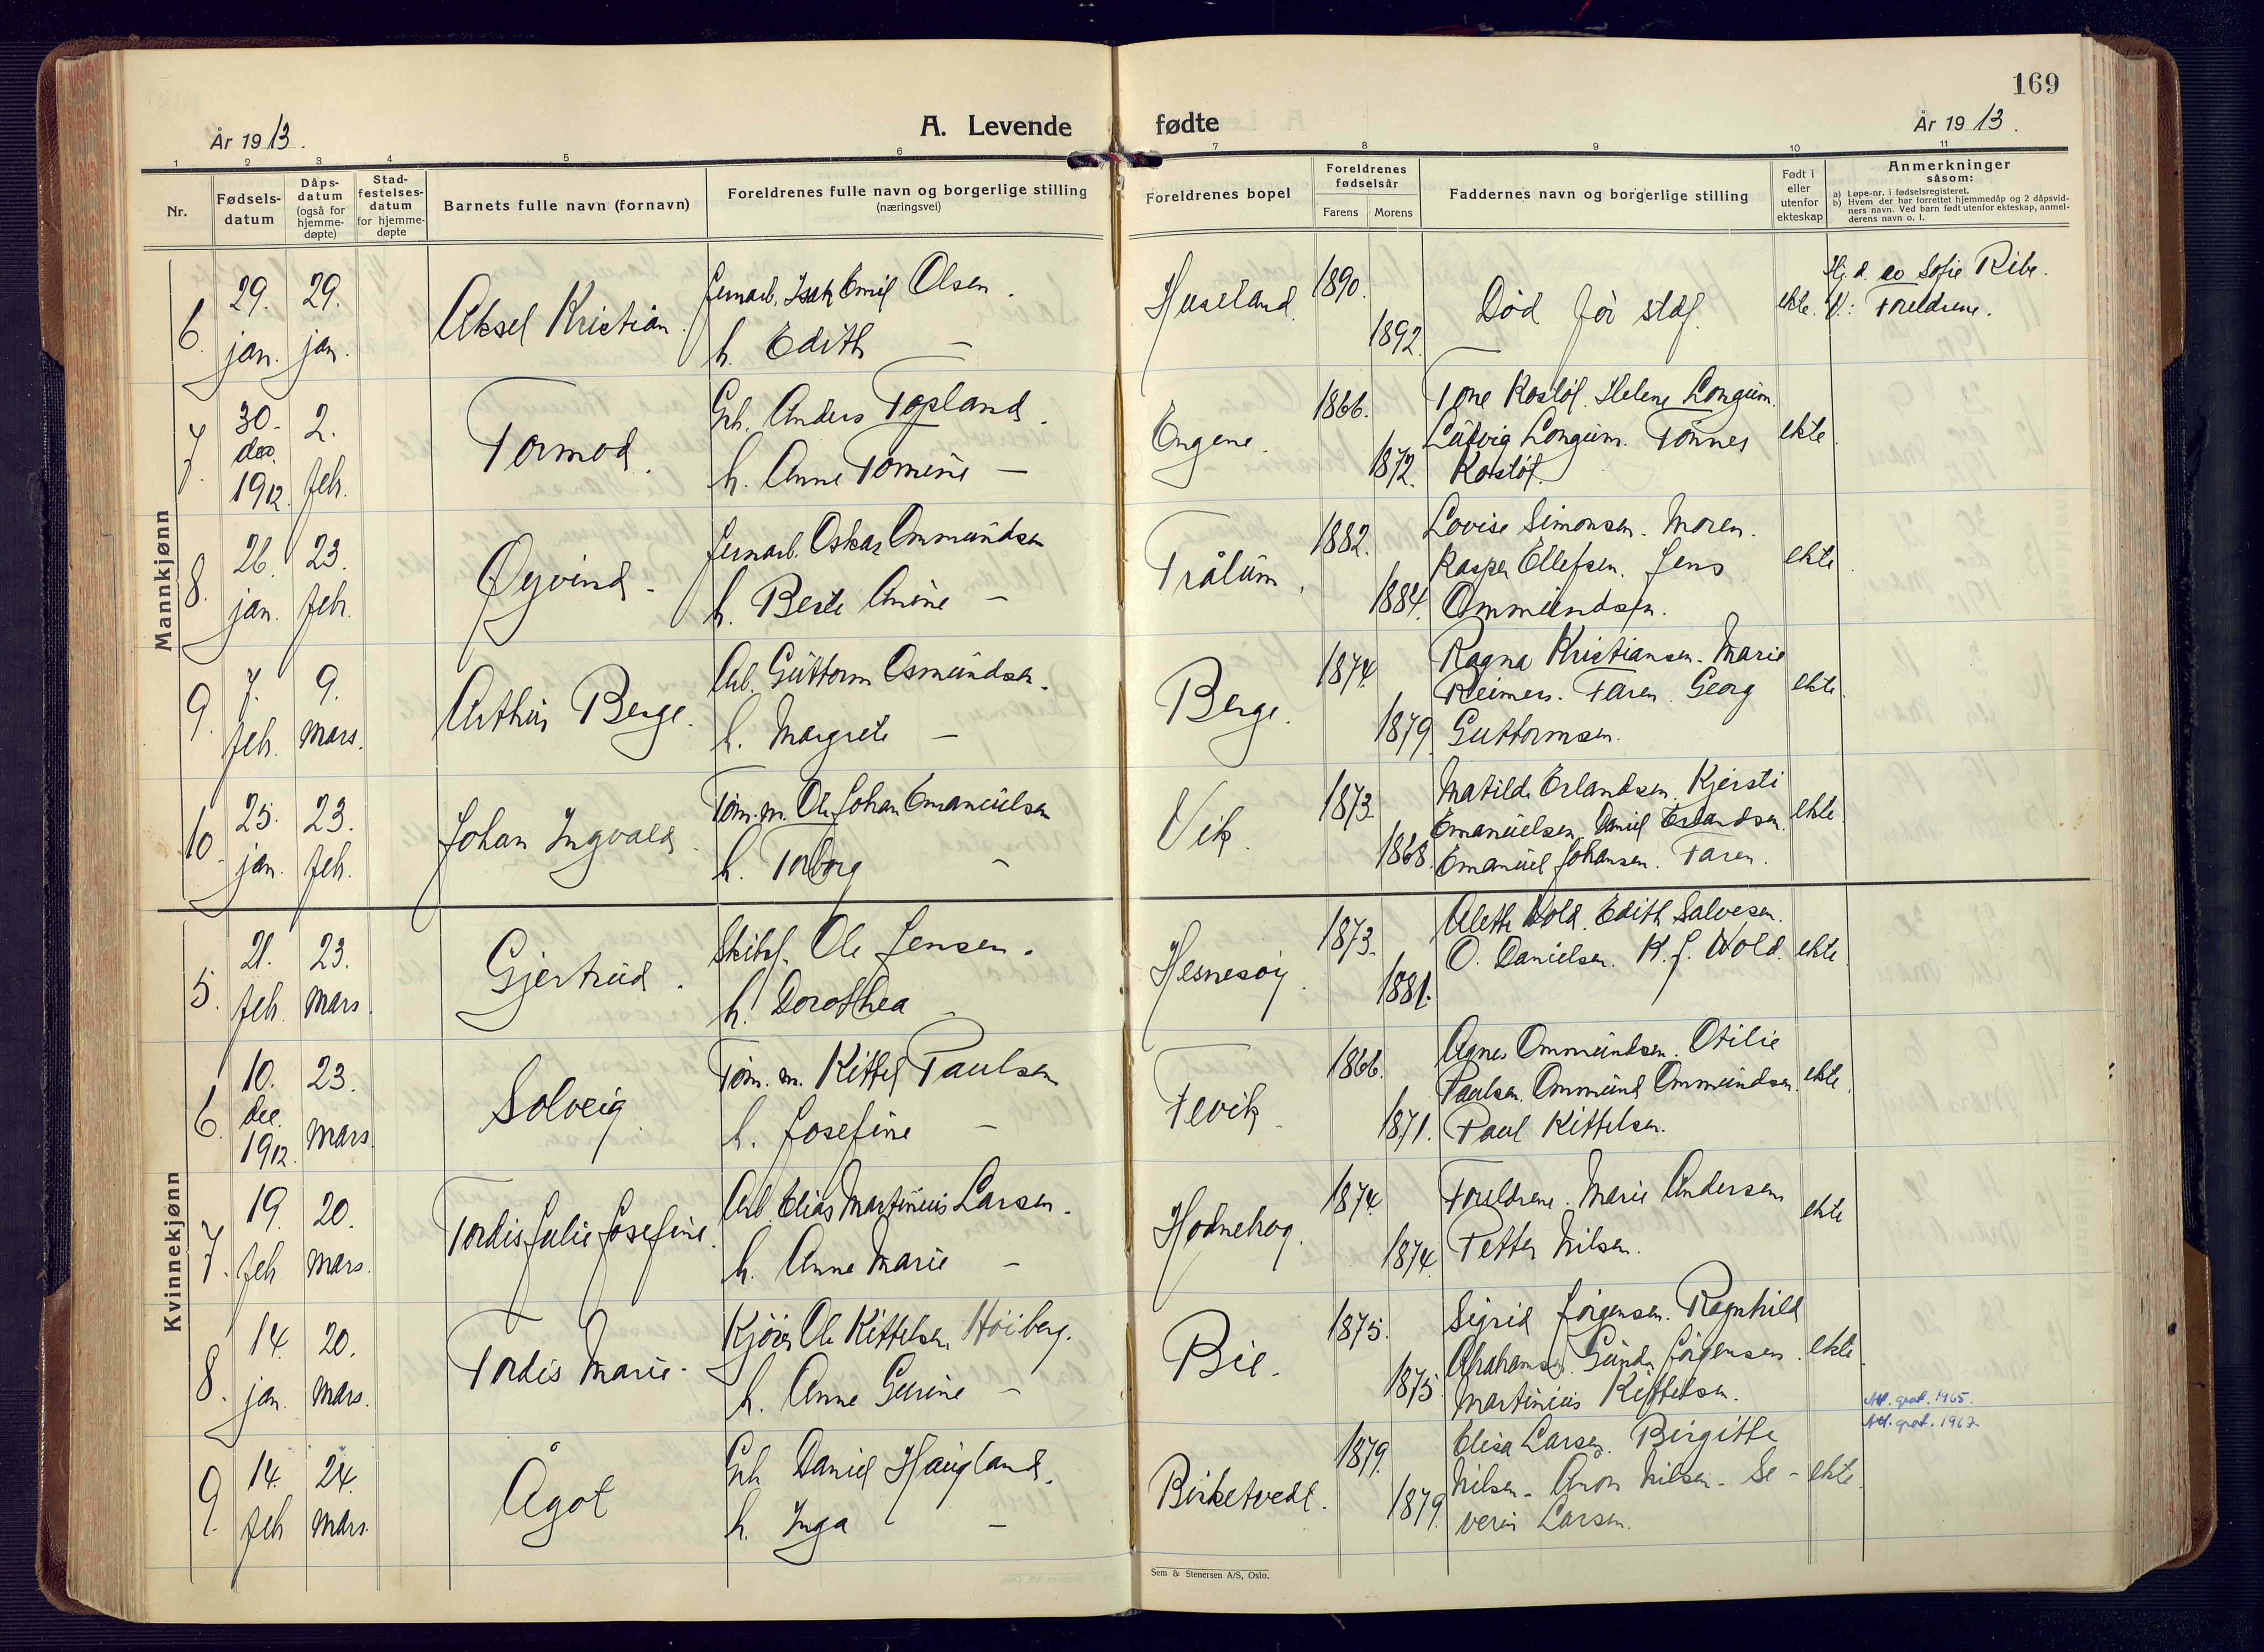 169
År 1913.
A. Levende fødte
År 1913.
1 2 3 4 5 6 7 8 9 10 11
Nr.
Fødsels-
datum
Dåps-
datum
(også for
hjemme-
døpte)
Stad-
festelses-
datum
for hjemme-
døpte
Barnets fulle navn (fornavn)
Foreldrenes fulle navn og borgerlige stilling
(næringsvei)
Foreldrenes bopel
Foreldrenes
fødselsår
Farens Morens
Faddernes navn og borgerlige stilling
Født i
eller
utenfor
ekteskap
Anmerkninger
såsom:
a) Løpe-nr. i fødselsregisteret.
b) Hvem der har forrettet hjemmedåp og 2 dåpsvid-
ners navn. Ved barn født utenfor ekteskap, anmel-
derens navn o. l.
Mannkjønn
6. 29. jan. 29. jan.
Aksel Kristian.
Jernarb. Isak Emil Olsen.
h. Edith —
Huseland.
1890.
1892.
Død før stdf.
ekte.
Hj. d. av Sofie Ribe.
V: Foreldrene.
7. 30. des. 1912. 2. feb.
Tormod.
Grb. Anders Topland.
h. Anne Tomine —
Engene.
1866.
1872.
Tone Kosløf. Helene Longum.
Ludvig Longum. Tønnes
Kosløf.
ekte.
8. 26. jan. 23. feb.
Øyvind.
Jernarb. Oskar Ommundsen
h. Berte Anine —
Trålum.
1882.
1884.
Lovise Simonsen. Moren.
Kasper Ellefsen. Jens
Ommundsen.
ekte.
9. 7. feb. 9. mars.
Arthur Berge.
Arb. Guttorm Osmundsen.
h. Margrete —
Berge.
1874.
1879
Ragna Kristiansen. Marie
Reimers. Faren. Georg
Guttormsen.
ekte.
10. 25. jan. 23. feb.
Johan Ingvald.
Tøm. m. Ole Johan Emanuelsen
h. Torborg —
Vik.
1873.
1868.
Matilde Erlandsen. Kjersti
Emanuelsen. Daniel Erlandsen.
Emanuel Johansen. Faren.
ekte.
Kvinnekjønn
5. 21. feb. 23. mars.
Gjertrud.
Skibsf. Ole Jensen.
h. Dorothea —
Hesnesøy.
1873.
1881.
Alette Wold. Edith Salvesen.
O. Danielsen. K. J. Wold.
ekte.
6. 10. dec. 1912. 23. mars.
Solveig
Tøm. m. Kittel Paulsen
h. Josefine —
Fevik.
1866.
1871.
Agnes Ommundsen. Otilie
Paulsen. Ommund Ommundsen.
Paul Kittelsen.
ekte.
7. 19. feb 20. mars.
Tordis Julie Josefine.
Arb. Elias Martinius Larsen.
h. Anne Marie —
Hodnebrog.
1874.
1874.
Foreldrene. Marie Andersen
Petter Nilsen.
ekte
8. 14. jan. 20. mars.
Tordis Marie.
Kjører Ole Kittelsen Høiberg.
h. Anne Gurine —
Bie.
1875.
1875.
Sigrid Jørgensen. Ragnhild
Abrahamsen. Gunder Jørgensen.
Martinius Kittelsen.
ekte.
Att. grat. 1965.
Att. grat. 1967
9. 14. feb 24. mars.
Ågot
Grb. Daniel Haugland.
h. Inga —
Birketvedt.
1879.
1879.
Elisa Larsen. Birgitte
Nilsen. Aron Nilsen. Se-
verin Larsen.
ekte.
Sem & Stenersen A/S, Oslo.